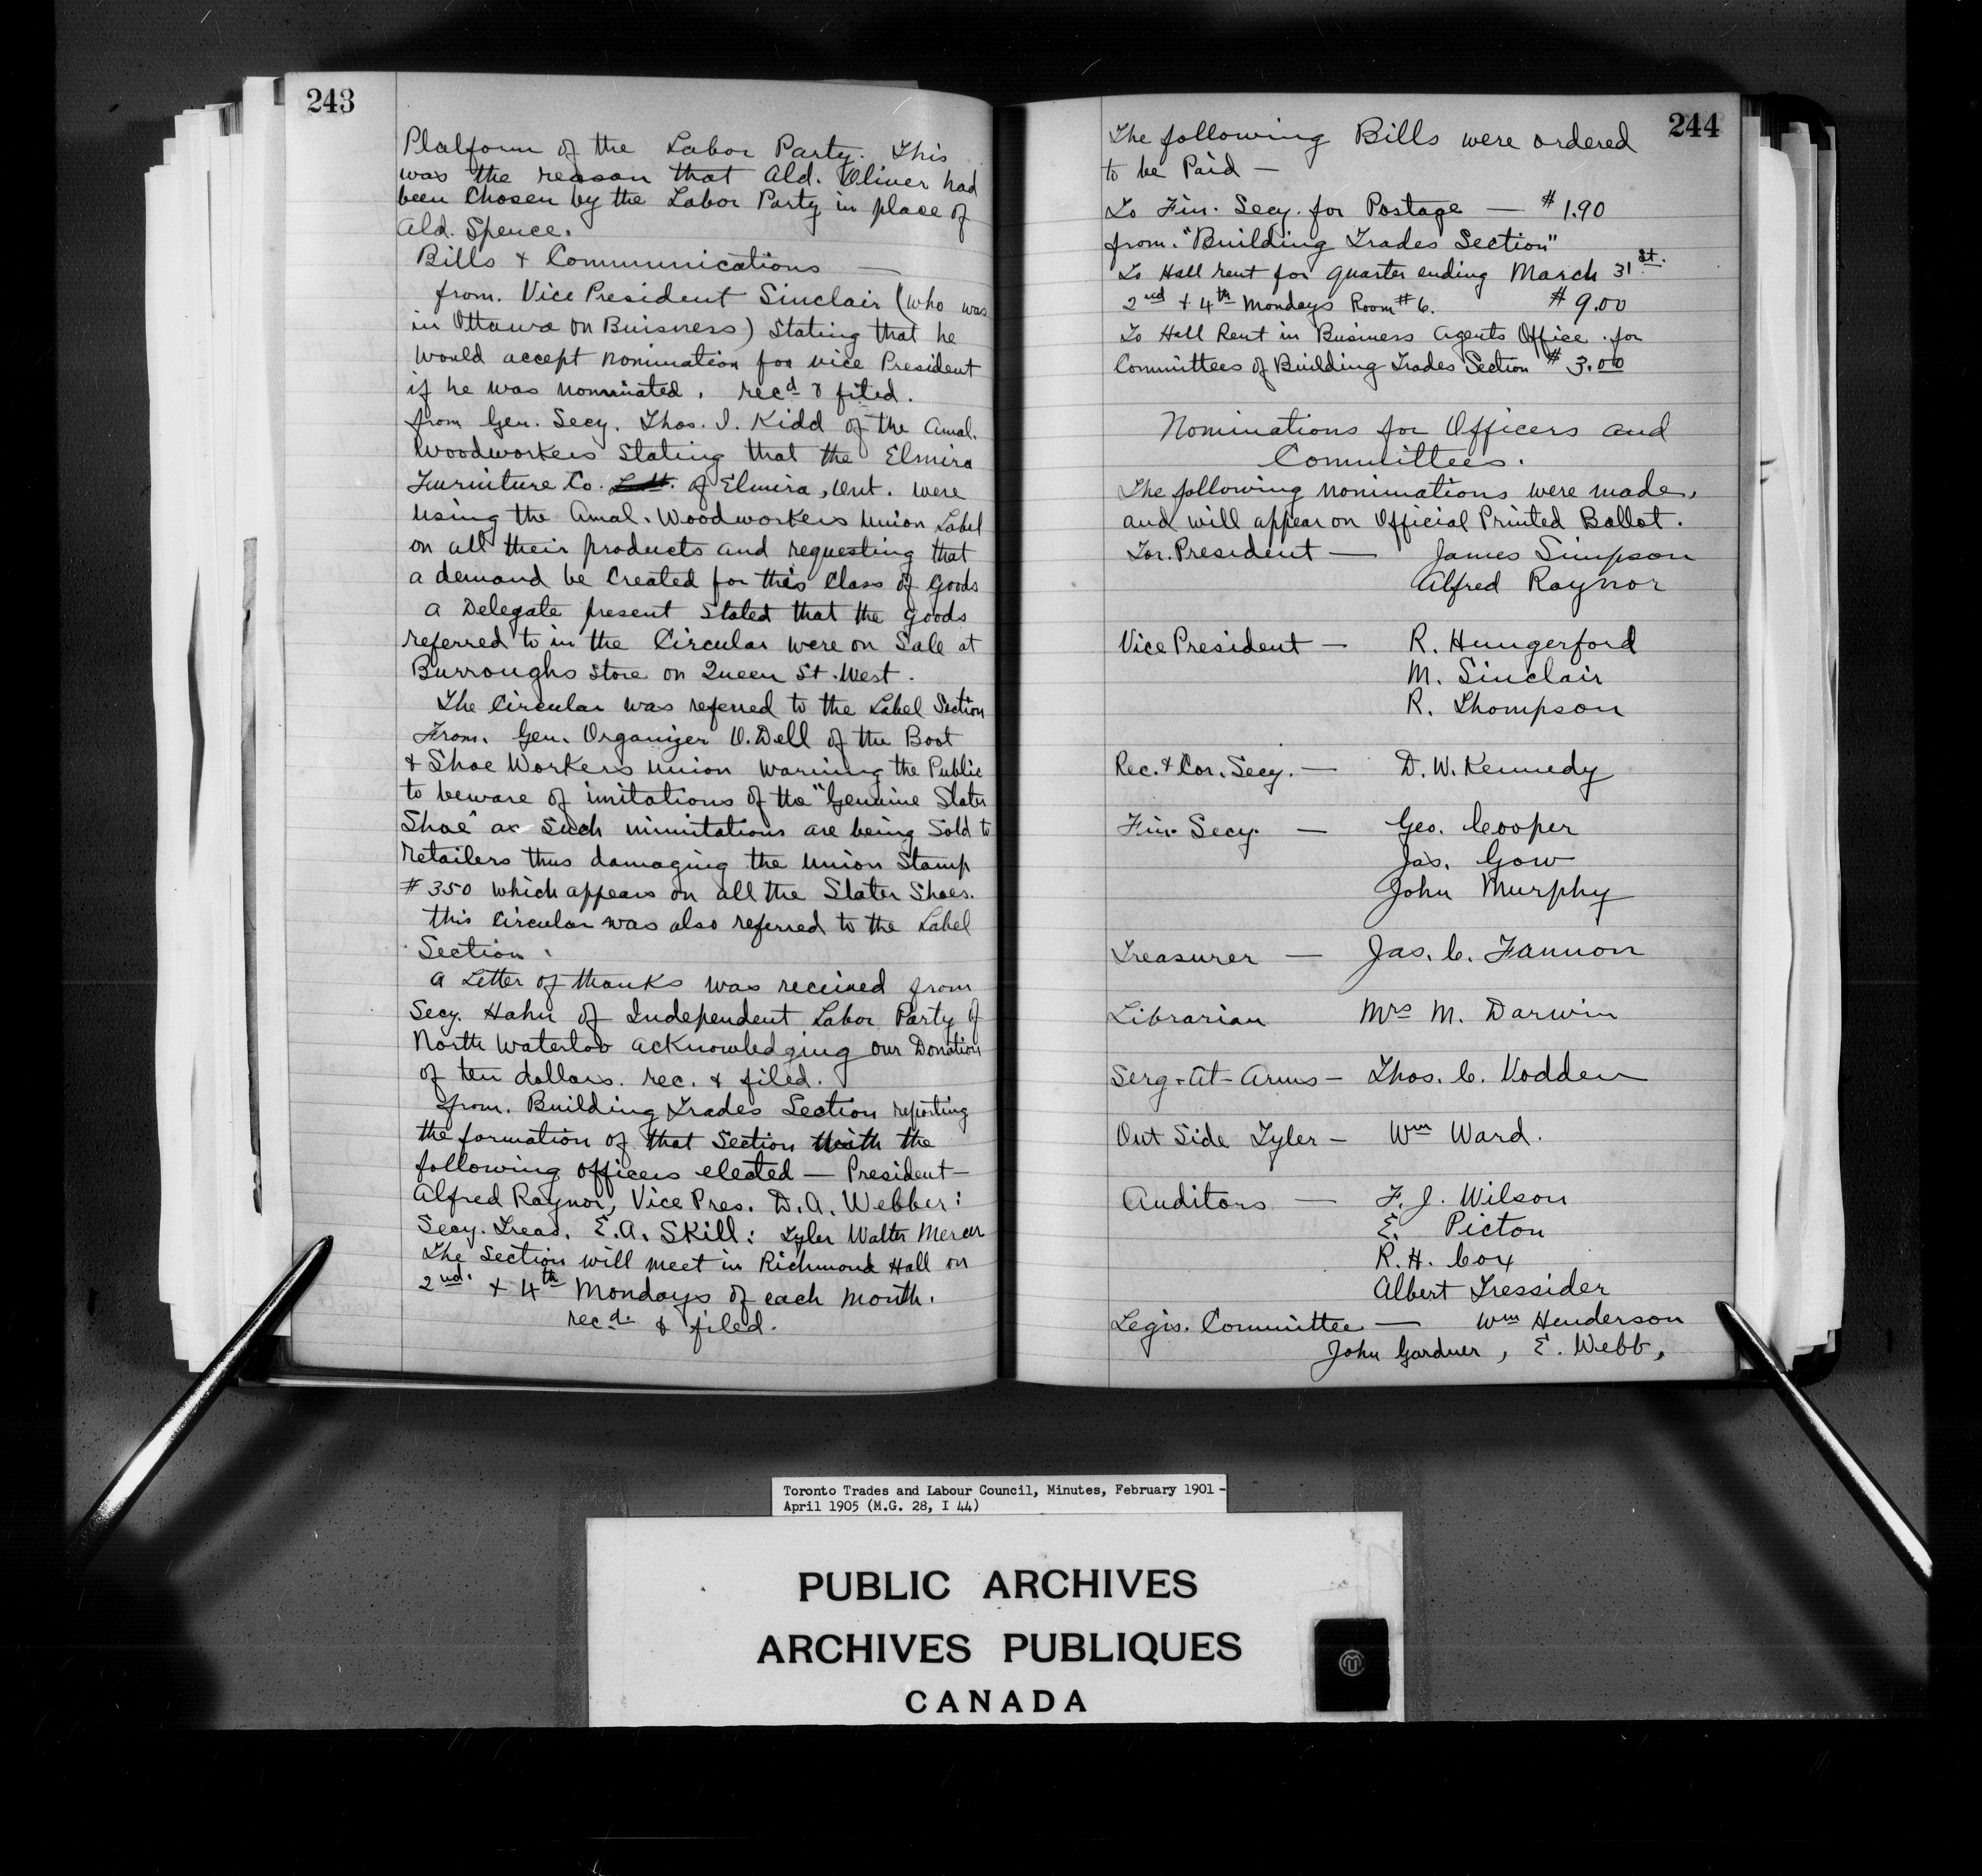 243
Platform of the Labor Party. This
was the reason that Ald. Oliver had
been Chosen by the Labor Party in place of
Ald. Spence.
Bills & Communications —
from. Vice President Sinclair (who was
in Ottawa on Buisness) Stating that he
would accept nomination for vice President
if he was nominated. rec.d & filed.
from Gen. Secy. Thos. I. Kidd of the Amal.
Woodworkers Stating that the Elmira
Furniture Co. of Elmira, Ont. were
using the Amal. Woodworkers Union Label
on all their products and requesting that
a demand be Created for this Class of Goods
A Delegate present Stated that the goods
referred to in the Circular were on Sale at
Burroughs Store on Queen St. West.
The Circular was referred to the Label Section
From. Gen. Organizer O.Dell of the Boot
& Shoe Workers Union warning the Public
to beware of imitations of the "Genuine Slater
Shoe" as Such immitations are being Sold to
retailers thus damaging the Union Stamp
# 350 which appears on all the Slater Shoes.
this Circular was also referred to the Label
Section.
A Letter of thanks was received from
Secy. Hahn of Independent Labor Party of
North Waterloo acknowledging our Donation
of ten dollars. rec. & filed.
from. Building Trades Section reporting
the formation of that Section With the
following officers elected — President —
Alfred Raynor, Vice Pres. D.A. Webber:
Secy. Treas. E.A. Skill: Tyler Walter Mercer
The Section will meet in Richmond Hall on
2nd. & 4th Mondays of each month.
rec.d. & filed.
244
The following Bills were ordered
to be Paid —
To Fin. Secy. for Postage — # 1.90
from. "Building Trades Section"
To Hall rent for quarter ending March 31st.
2nd & 4th Mondays Room # 6. # 9.00
To Hall Rent in Business Agents Office. for
Committees of Building Trades Section # 3.00
Nominations for Officers and
Committees.
The following nominations were made,
and will appear on Official Printed Ballot.
For. President — James Simpson
Alfred Raynor
Vice President — R. Hungerford
M. Sinclair
R. Thompson
Rec. & Cor. Secy. — D. W. Kennedy
Fin. Secy. — Geo. Cooper
Jas. Gow
John Murphy
Treasurer — Jas. C. Fannon
Librarian Mrs M. Darwin
Serg-At-Arms — Thos. C. Vodden
Out Side Tyler — Wm Ward.
Auditors — F. J. Wilson
E. Picton
R. H. Cox
Albert Tressider
Legis. Committee — Wm Henderson
John Gardner, E. Webb,
Toronto Trades and Labour Council, Minutes, February 1901 -
April 1905 (M.G. 28, I 44)
PUBLIC ARCHIVES
ARCHIVES PUBLIQUES
CANADA